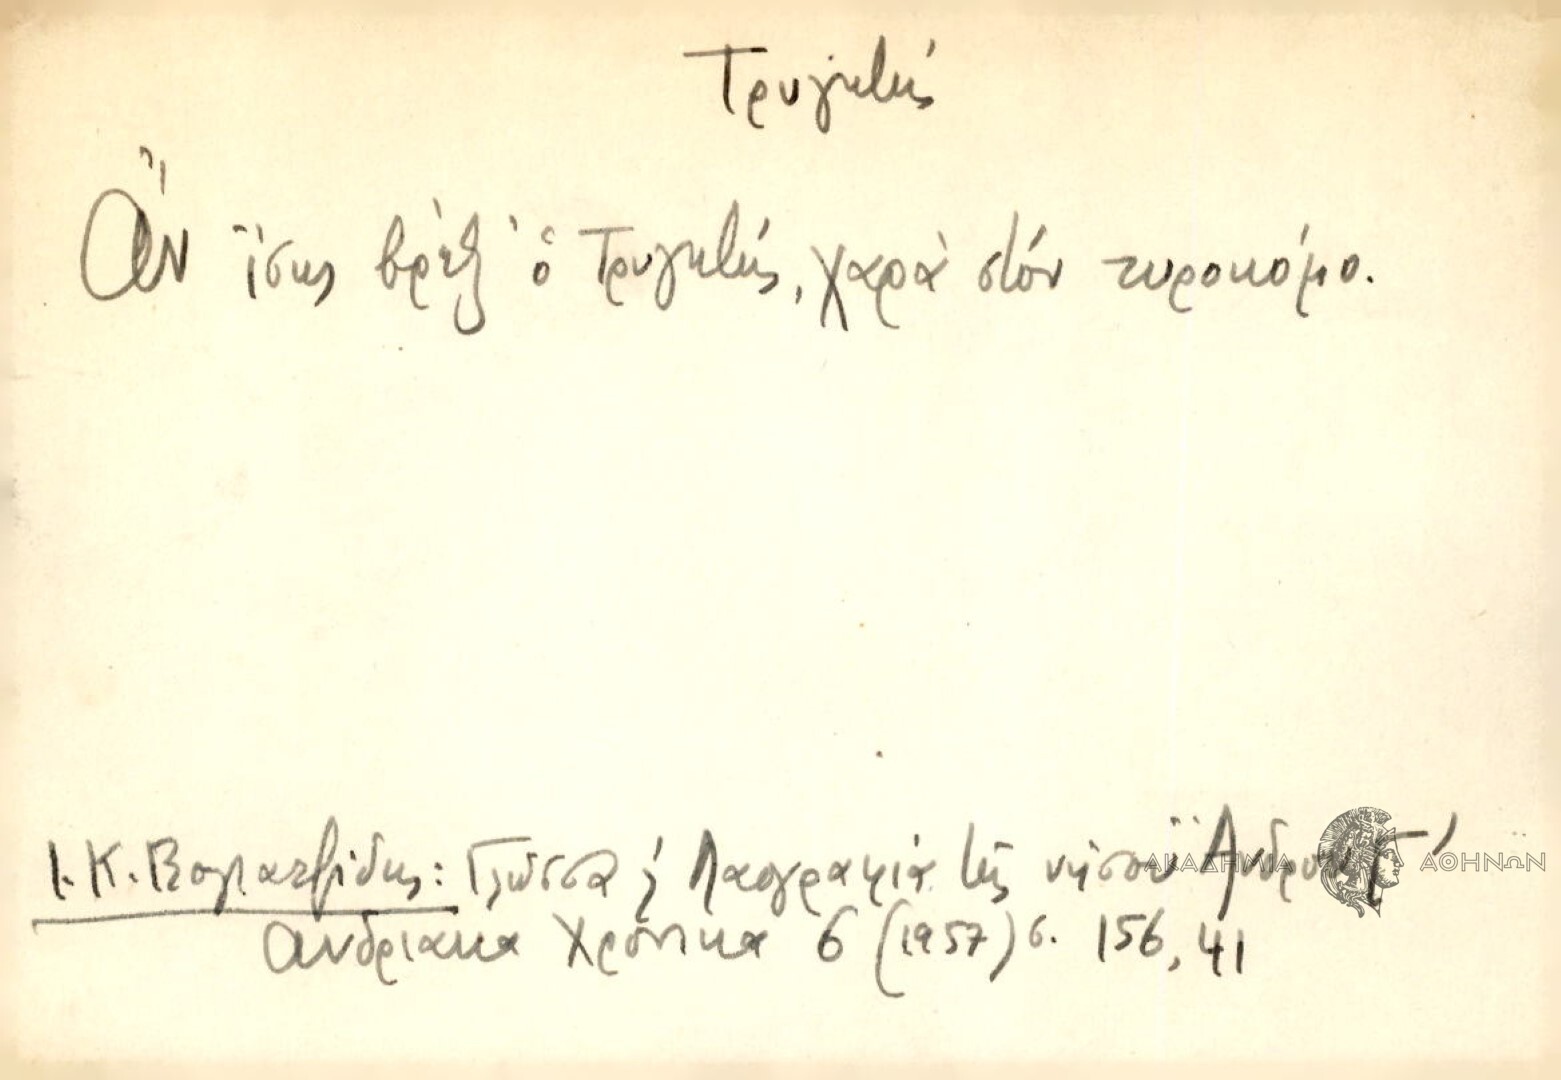 Τρυγητής
Ἄν ἴσως βρέξῃ ὁ Τρυγητής, χαρὰ στόν τυροκόμο.
Ι. Κ. Βογιατζίδης: Γλῶσσα ϗ Λαογραφία τῆς νήσου Ἄνδρου Γ΄
Ανδριακα Χρονικα 6 (1957) σ. 156, 41
ΑΚΑΔΗΜΙΑ ΑΘΗΝΩΝ